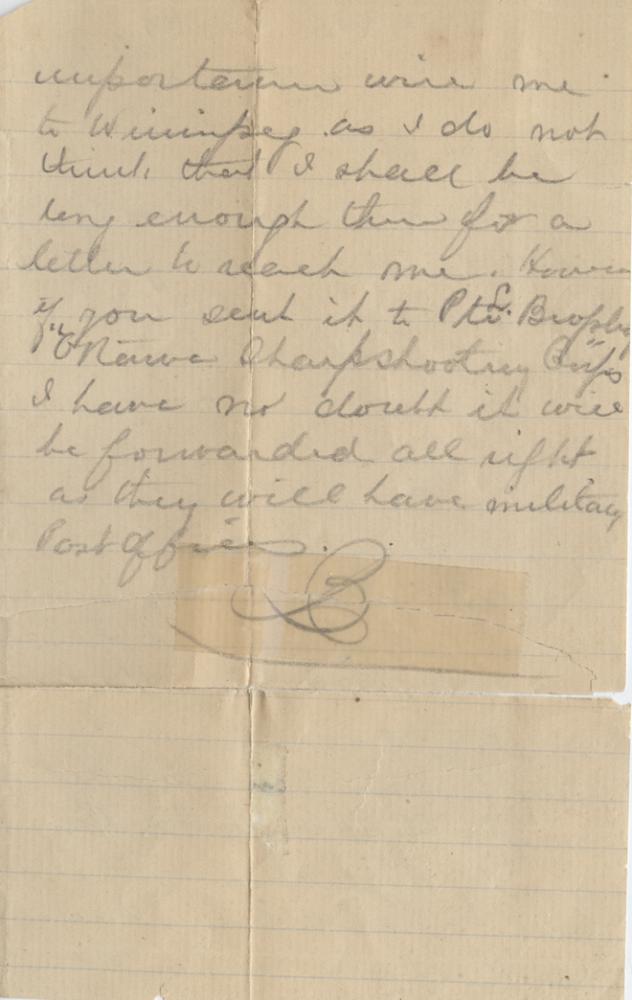 importance wire me
to Winnipeg as I do not
think that I shall be
long enough there for a
letter to reach me. However
if you sent it to Pte. Brophy
Ottawa Sharpshooting Corps
I have no doubt it will
be forwarded all right
as they will have military
Post Offices.
B